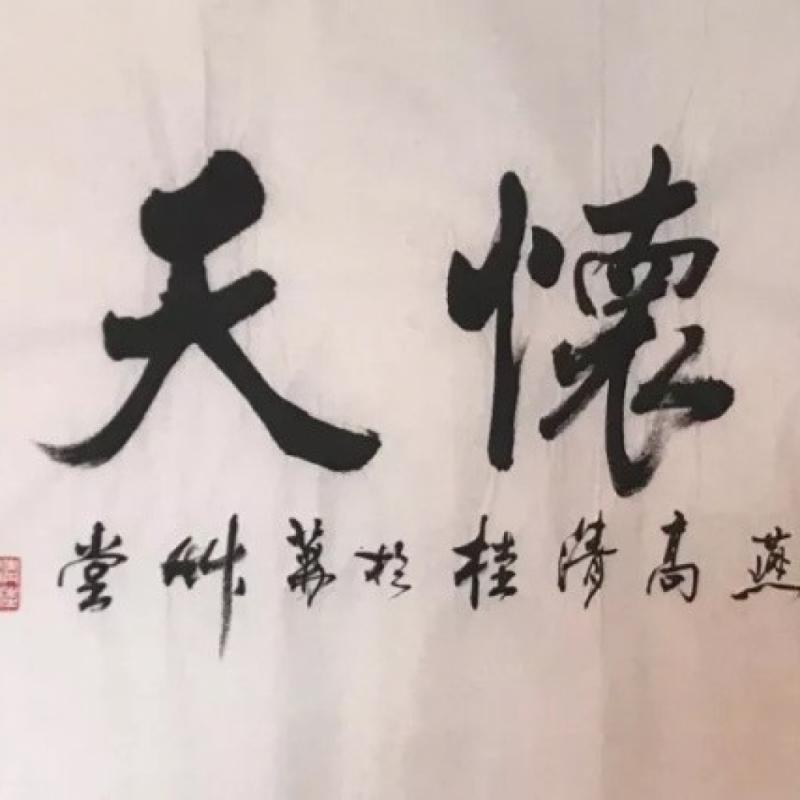 懷天
燕高清桂於草堂